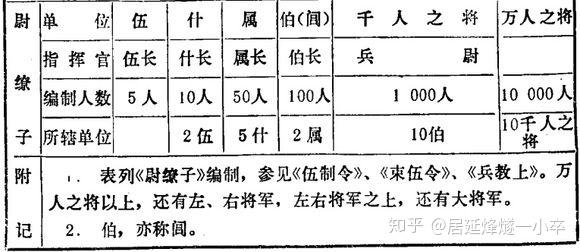 尉缭子
单位 伍 什 属 伯(闾) 千人之将 万人之将
指挥官 伍长 什长 属长 伯长 兵尉
编制人数 5人 10人 50人 100人 1 000人 10 000人
所辖单位 2伍 5什 2属 10伯 10千人之将
附记
1. 表列《尉缭子》编制，参见《伍制令》、《束伍令》、《兵教上》。万
人之将以上，还有左、右将军，左右将军之上，还有大将军。
2. 伯，亦称闾。
知乎 @居延烽燧一小卒